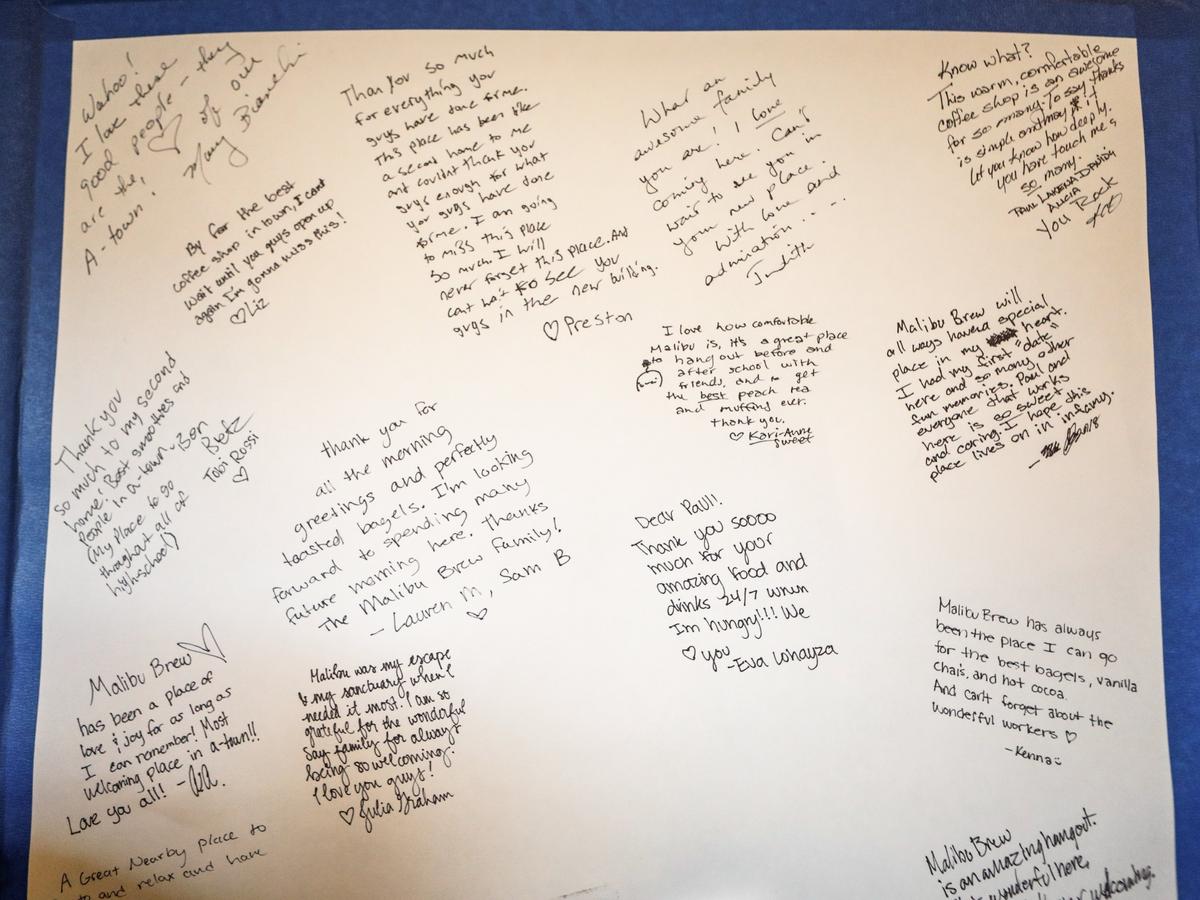 Wahoo!
I love these
good people - they
are the ♡ of our
A-town! Mary Bianchi
By far the best
coffee shop in town, I cant
wait until you guys open up
again I'm gonna miss this!
♡ Liz
Thank You so much
for everything you
guys have done for me.
This place has been like
a second home to me
and couldnt thank you
guys enough for what
you guys have done
for me. I am going
to miss this place
so much. I will
never forget this place. And
cant wait to see you
guys in the new building.
♡ Preston
What an
awesome family
you are! I love
coming here. Can't
wait to see you in
your new place.
With love and
admiration . . - .
Judith
Know what?
This warm, comfortable
coffee shop is an awesome
for so many. To say thanks
is simple and may it
let you know how deeply.
you have touch me &
so many.
PAUL LAKENA DAVID
ALICIA
You Rock
I love how comfortable
Malibu is, it's a great place
to hang out before and
after school with
friends, and to get
the best peach tea
and muffins ever.
thank you.
♡ Kari-Anne
Sweet
Malibu Brew will
all ways haved special
place in my heart.
I had my first "date"
here and so many other
fun memories. Paul and
everyone that works
here is so sweet
and caring. I hope this
place lives on in infamy.
Thank you
so much to my second
home! Best smoothies and
People in a-town. -Ben
(My place to go Betz
throughout all of Tobi Rossi
highschool) ♡
thank you for
all the morning
greetings and perfectly
toasted bagels. I'm looking
forward to spending many
future morning here. Thanks
The Malibu Brew Family!
- Lauren M, Sam B
♡
Dear Paul!!
Thank you soooo
much for your
amazing food and
drinks 24/7 when
I'm hungry!!! We
♡ you
-Eva Whayza
Malibu Brew has always
been the place I can go
for the best bagels, vanilla
chais, and hot cocoa.
And can't forget about the
wonderful workers ♡
-Kenna
Malibu Brew ♡
has been a place of
love & joy for as long as
I can remember! Most
welcoming place in a-town!!
Love you all! -
Malibu was my escape
& my sanctuary when I
needed it most. I am so
grateful for the wonderful
Say family for always
being so welcoming.
I love you guys!
♡ Julia Graham
A Great Nearby place to
and relax and have
Malibu Brew
is an amazing hangout.
wonderful here,
welcoming.